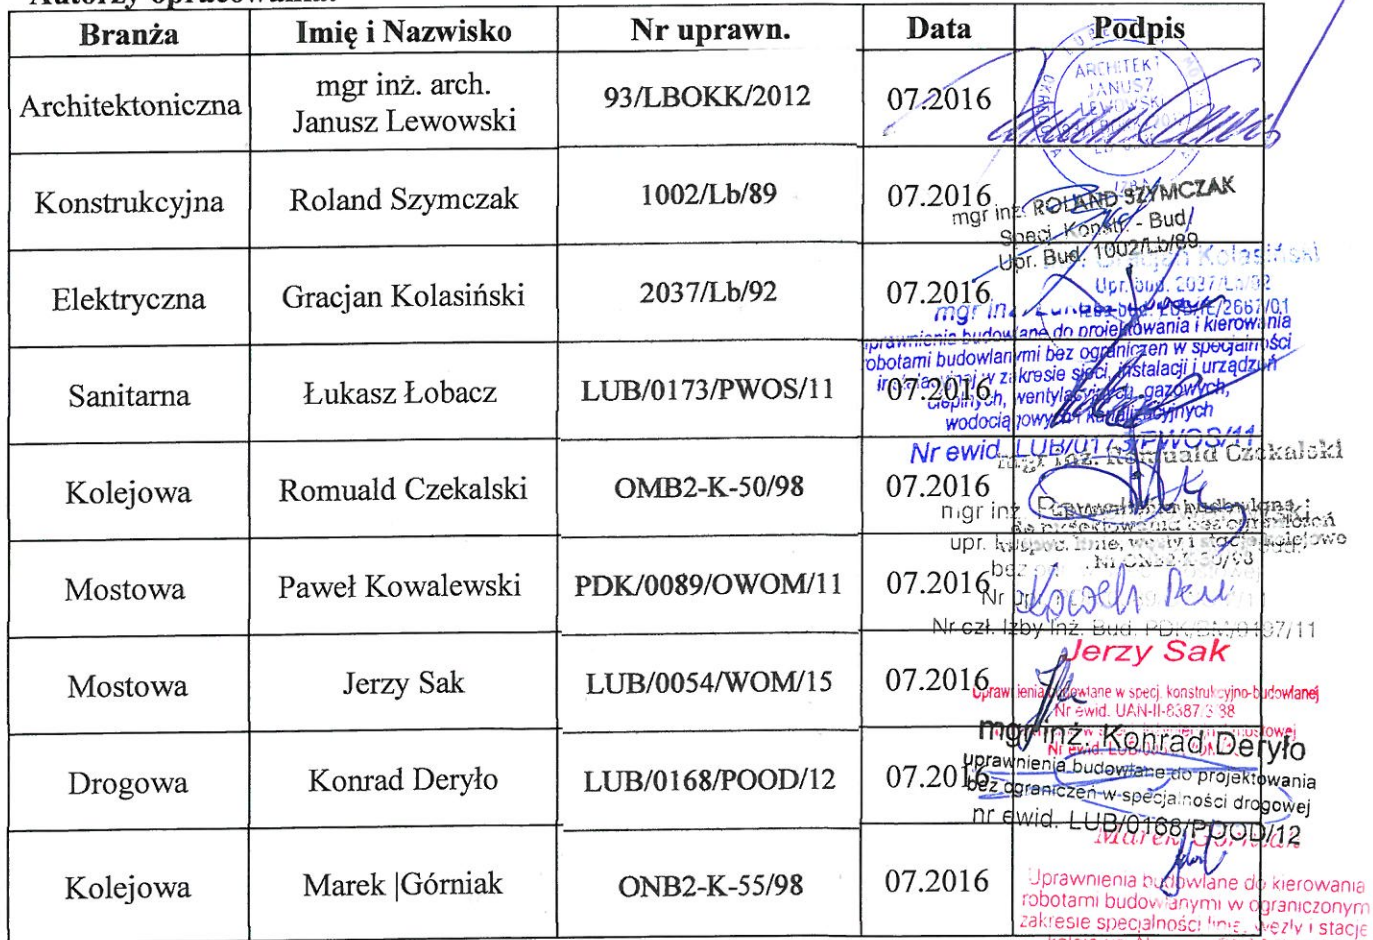 Autorzy opracowania:
Branża Imię i Nazwisko Nr uprawn. Data Podpis
Architektoniczna mgr inż. arch. Janusz Lewowski 93/LBOKK/2012 07.2016
ARCHITEKT
JANUSZ
LEWOWSKI
OKRĘGOWA
IZBA
Konstrukcyjna Roland Szymczak 1002/Lb/89 07.2016
mgr inż. ROLAND SZYMCZAK
Specj. Konstr. - Bud.
Upr. Bud. 1002/Lb/89
Elektryczna Gracjan Kolasiński 2037/Lb/92 07.2016
Gracjan Kolasiński
Upr. bud. 2037/Lb/92
LUB/IE/2667/01
mgr inż.
uprawnienia budowlane do projektowania i kierowania
robotami budowlanymi bez ograniczeń w specjalności
instalacyjnej w zakresie sieci, instalacji i urządzeń
cieplnych, wentylacyjnych, gazowych,
wodociągowych i kanalizacyjnych
Nr ewid. LUB/0173/PWOS/11
Sanitarna Łukasz Łobacz LUB/0173/PWOS/11 07.2016
Kolejowa Romuald Czekalski OMB2-K-50/98 07.2016
mgr inż. Romuald Czekalski
mgr inż.
linie, węzły i stacje kolejowe
Mostowa Paweł Kowalewski PDK/0089/OWOM/11 07.2016
Nr czł. Izby Inż. Bud. PDK/BM/0197/11
Mostowa Jerzy Sak LUB/0054/WOM/15 07.2016
Jerzy Sak
Uprawnienia budowlane w specj. konstrukcyjno-budowlanej
Nr ewid. UAN-II-8387
Drogowa Konrad Deryło LUB/0168/POOD/12 07.2016
mgr inż. Konrad Deryło
uprawnienia budowlane do projektowania
bez ograniczeń w specjalności drogowej
nr ewid. LUB/0168/POOD/12
Kolejowa Marek |Górniak ONB2-K-55/98 07.2016
Marek Górniak
Uprawnienia budowlane do kierowania
robotami budowlanymi w ograniczonym
zakresie specjalności linie, węzły i stacje